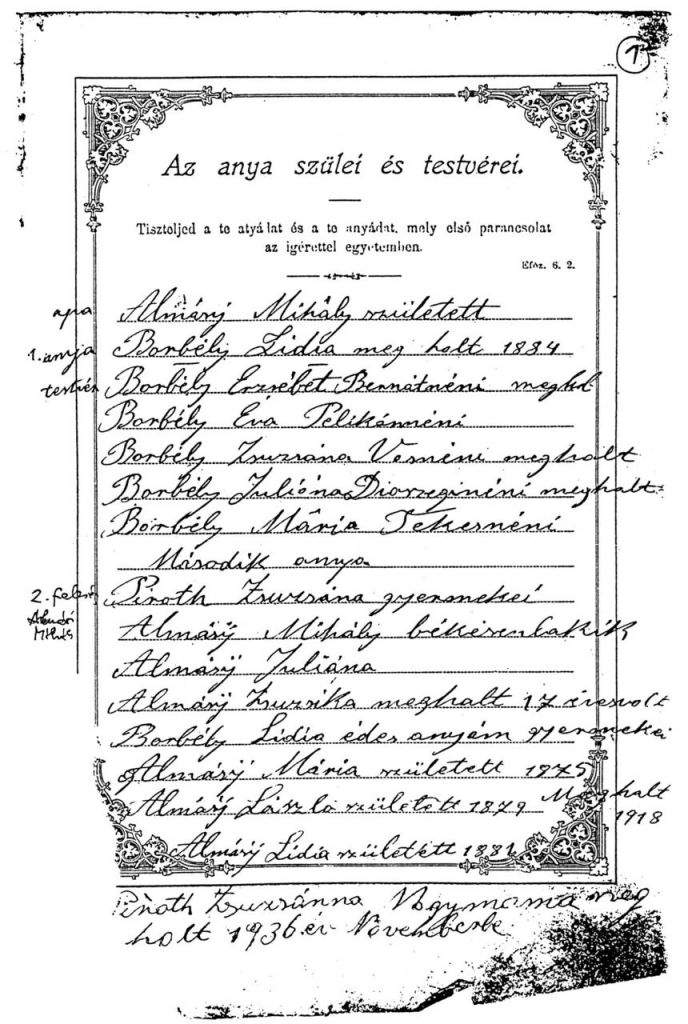 1
Az anya szülei és testvérei.
Tiszteljed a te atyádat és a te anyádat, mely első parancsolat
az igérettel egyetemben.
Eféz. 6. 2.
apa Almásÿ Mihály született
1. anyja Borbély Lidia meg holt 1884
testvér Borbély Erzsébet Bernátnéni megho
Borbély Éva Pelikánnéni
Borbély Zsuzsána Vasnéni meghalt
Borbély Julióna Diorzeginéni meghalt
Borbély Mária Tekernéni
Második anya
2. feleség Piroth Zsuzsána gyermekei
Almásÿ Mihály békésenlakik
Almási
Mihály
Almásÿ Juliána
Almásÿ Zsuzsika meghalt 17 évesvolt
Borbély Lidia édes anyám gyermekei
Almásÿ Mária született 1875
Almásÿ László született 1879 Meghalt
1918
Almásÿ Lidia született 1881
Piroth Zsuzsánna Nagymama meg
holt 1936 év Novemberbe